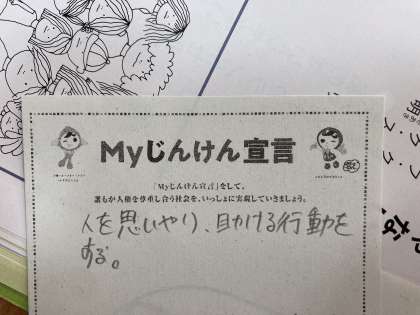 Myじんけん宣言
「Myじんけん宣言」をして、
誰もが人権を尊重し合う社会を、いっしょに実現していきましょう。
人を思いやり、助ける行動を
する。